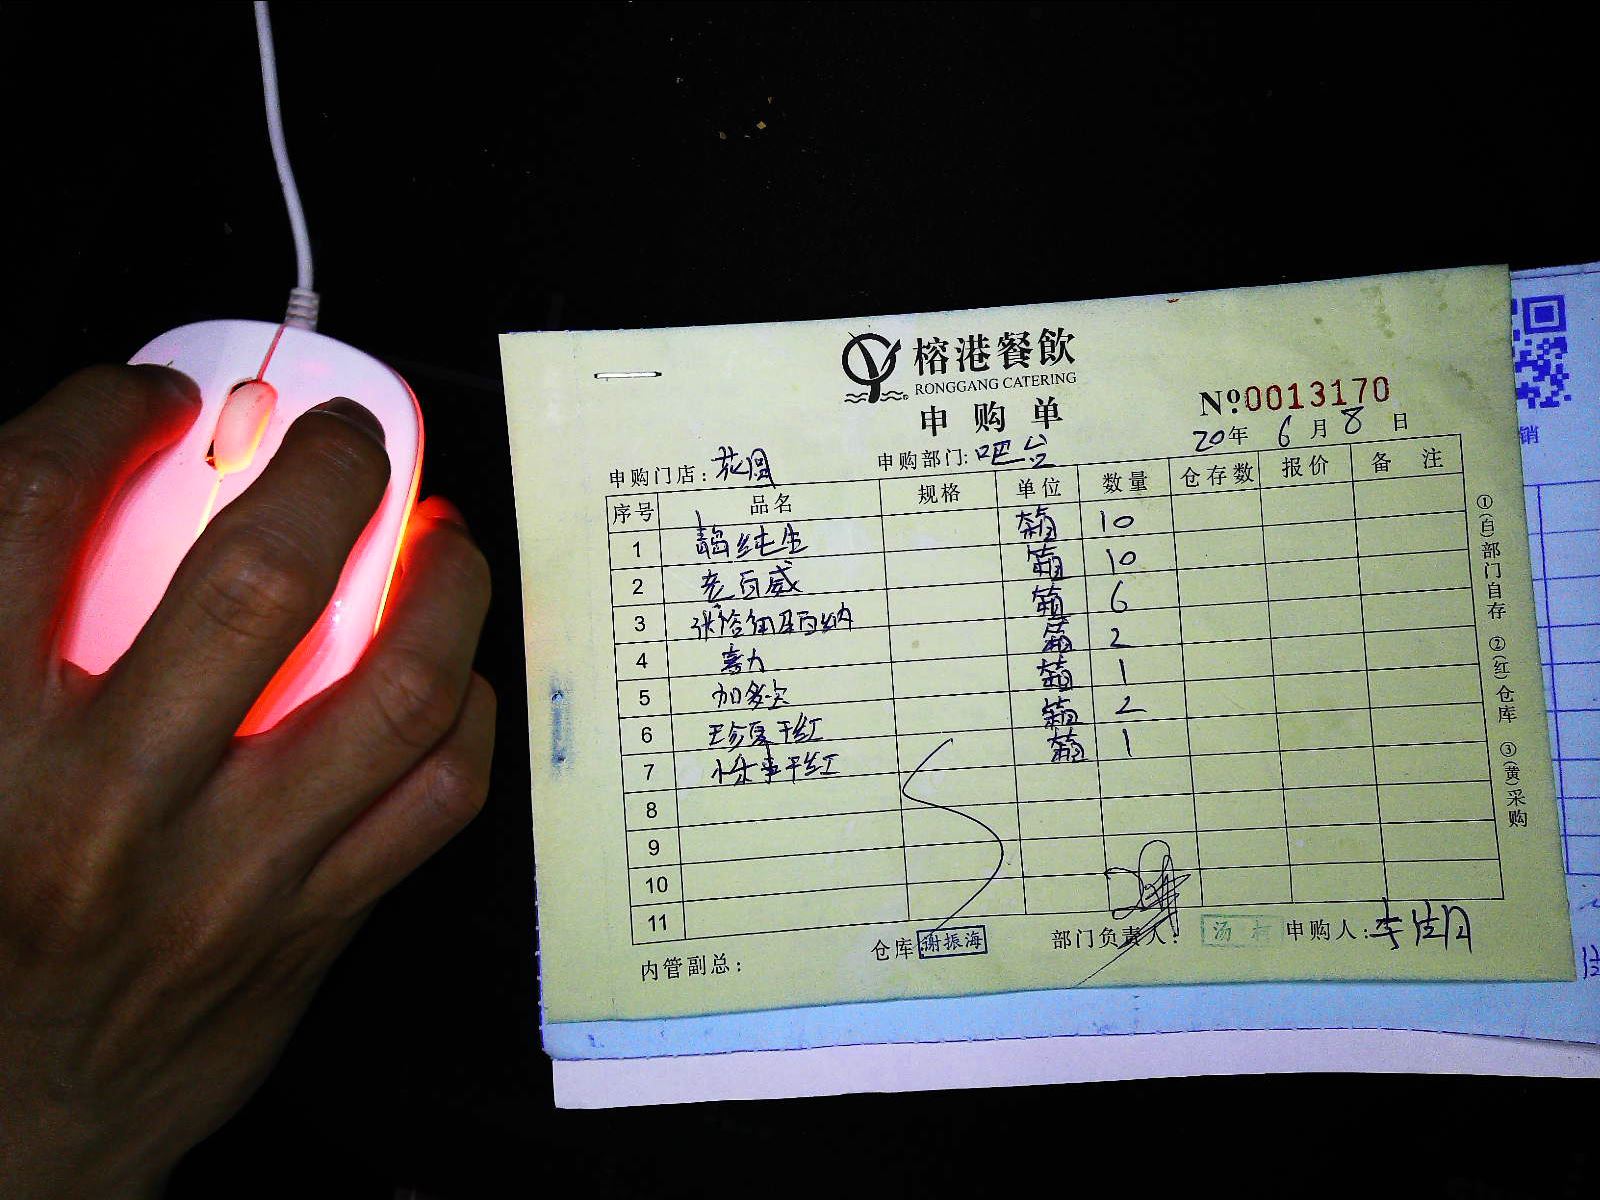 榕港餐飲
RONGGANG CATERING
申购单
№0013170
20年 6月 8日
申购门店:花园 申购部门:吧台
序号 品名 规格 单位 数量 仓存数 报价 备 注
1 青岛纯生 箱 10
2 老百威 箱 10
3 张裕 箱 6
4 喜力 箱 2
5 加多宝 箱 1
6 珍夏干红 箱 2
7 干红 箱 1
8
9
10
11
仓库 谢振海 部门负责人: 汤 申购人:李
内管副总:
①(白)部门自存 ②(红)仓库 ③(黄)采购
销